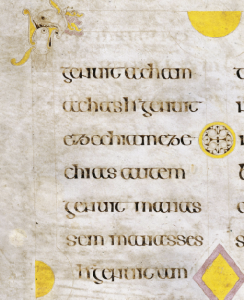 genuit acham
achas h genuit
ezechiam eze
chias autem
genuit manas
sem manasses
h genuit am